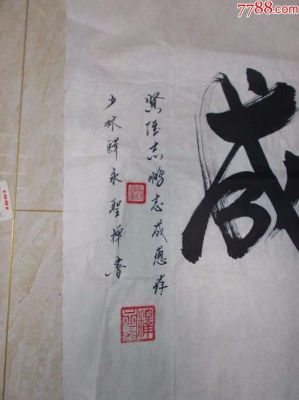 7788.com
贤侄志鹏志成惠存
少林释永聖禅书